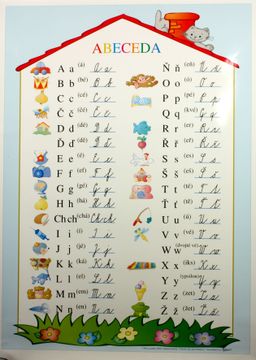 ABECEDA
A a (á) A a
B b (bé) B b
C c (cé) C c
Č č (čé) Č č
D d (dé) D d
Ď ď (ďé) Ď ď
E e (é) E e
F f (ef) F f
G g (gé) G g
H h (há) H h
Ch ch (chá) Ch ch
I i (í) I i
J j (jé) J j
K k (ká) K k
L l (el) L l
M m (em) M m
N n (en) N n
Ň ň (eň) Ň ň
O o (ó) O o
P p (pé) P p
Q q (kvé) Q q
R r (er) R r
Ř ř (eř) Ř ř
S s (es) S s
Š š (eš) Š š
T t (té) T t
Ť ť (ťé) Ť ť
U u (ú) U u
V v (vé) V v
W w (dvojité vé) W w
X x (iks) X x
Y y (ypsilon) Y y
Z z (zet) Z z
Ž ž (žet) Ž ž